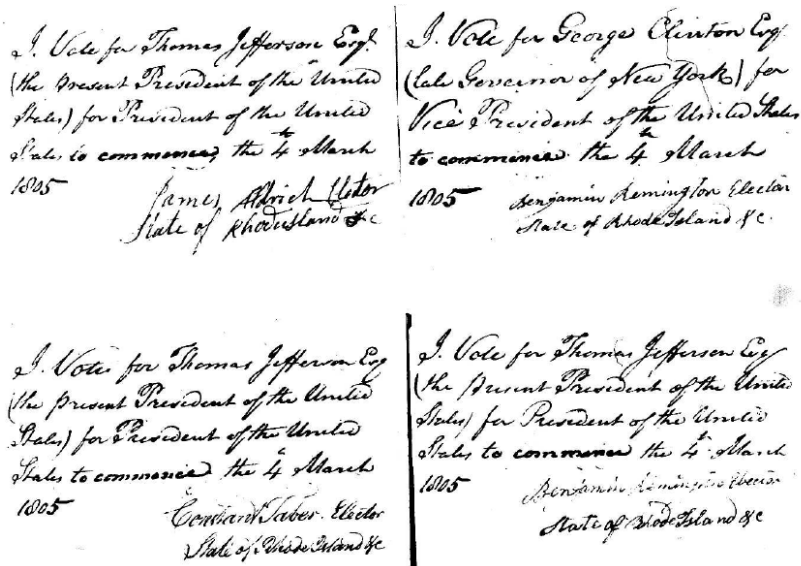 I. Vote for Thomas Jefferson Esqr.
(the present President of the United
States) for President of the United
States to commence, the 4th March
1805
James Aldrich Elector
State of Rhodeisland &c
I. Vote for George Clinton Esqr
(late Governor of New York) for
Vice President of the United States
to commence the 4th March
1805
Benjamin Remington Elector
State of Rhode Island &c.
I. Vote for Thomas Jefferson Esq
(the present President of the United
States) for President of the United
States to commence the 4th March
1805
Constant Taber. Elector
State of Rhode Island &c
I. Vote for Thomas Jefferson Esq
(the present President of the United
States) for President of the United
States to commence the 4th March
1805
Benjamin Remington Elector
State of Rhode Island &c